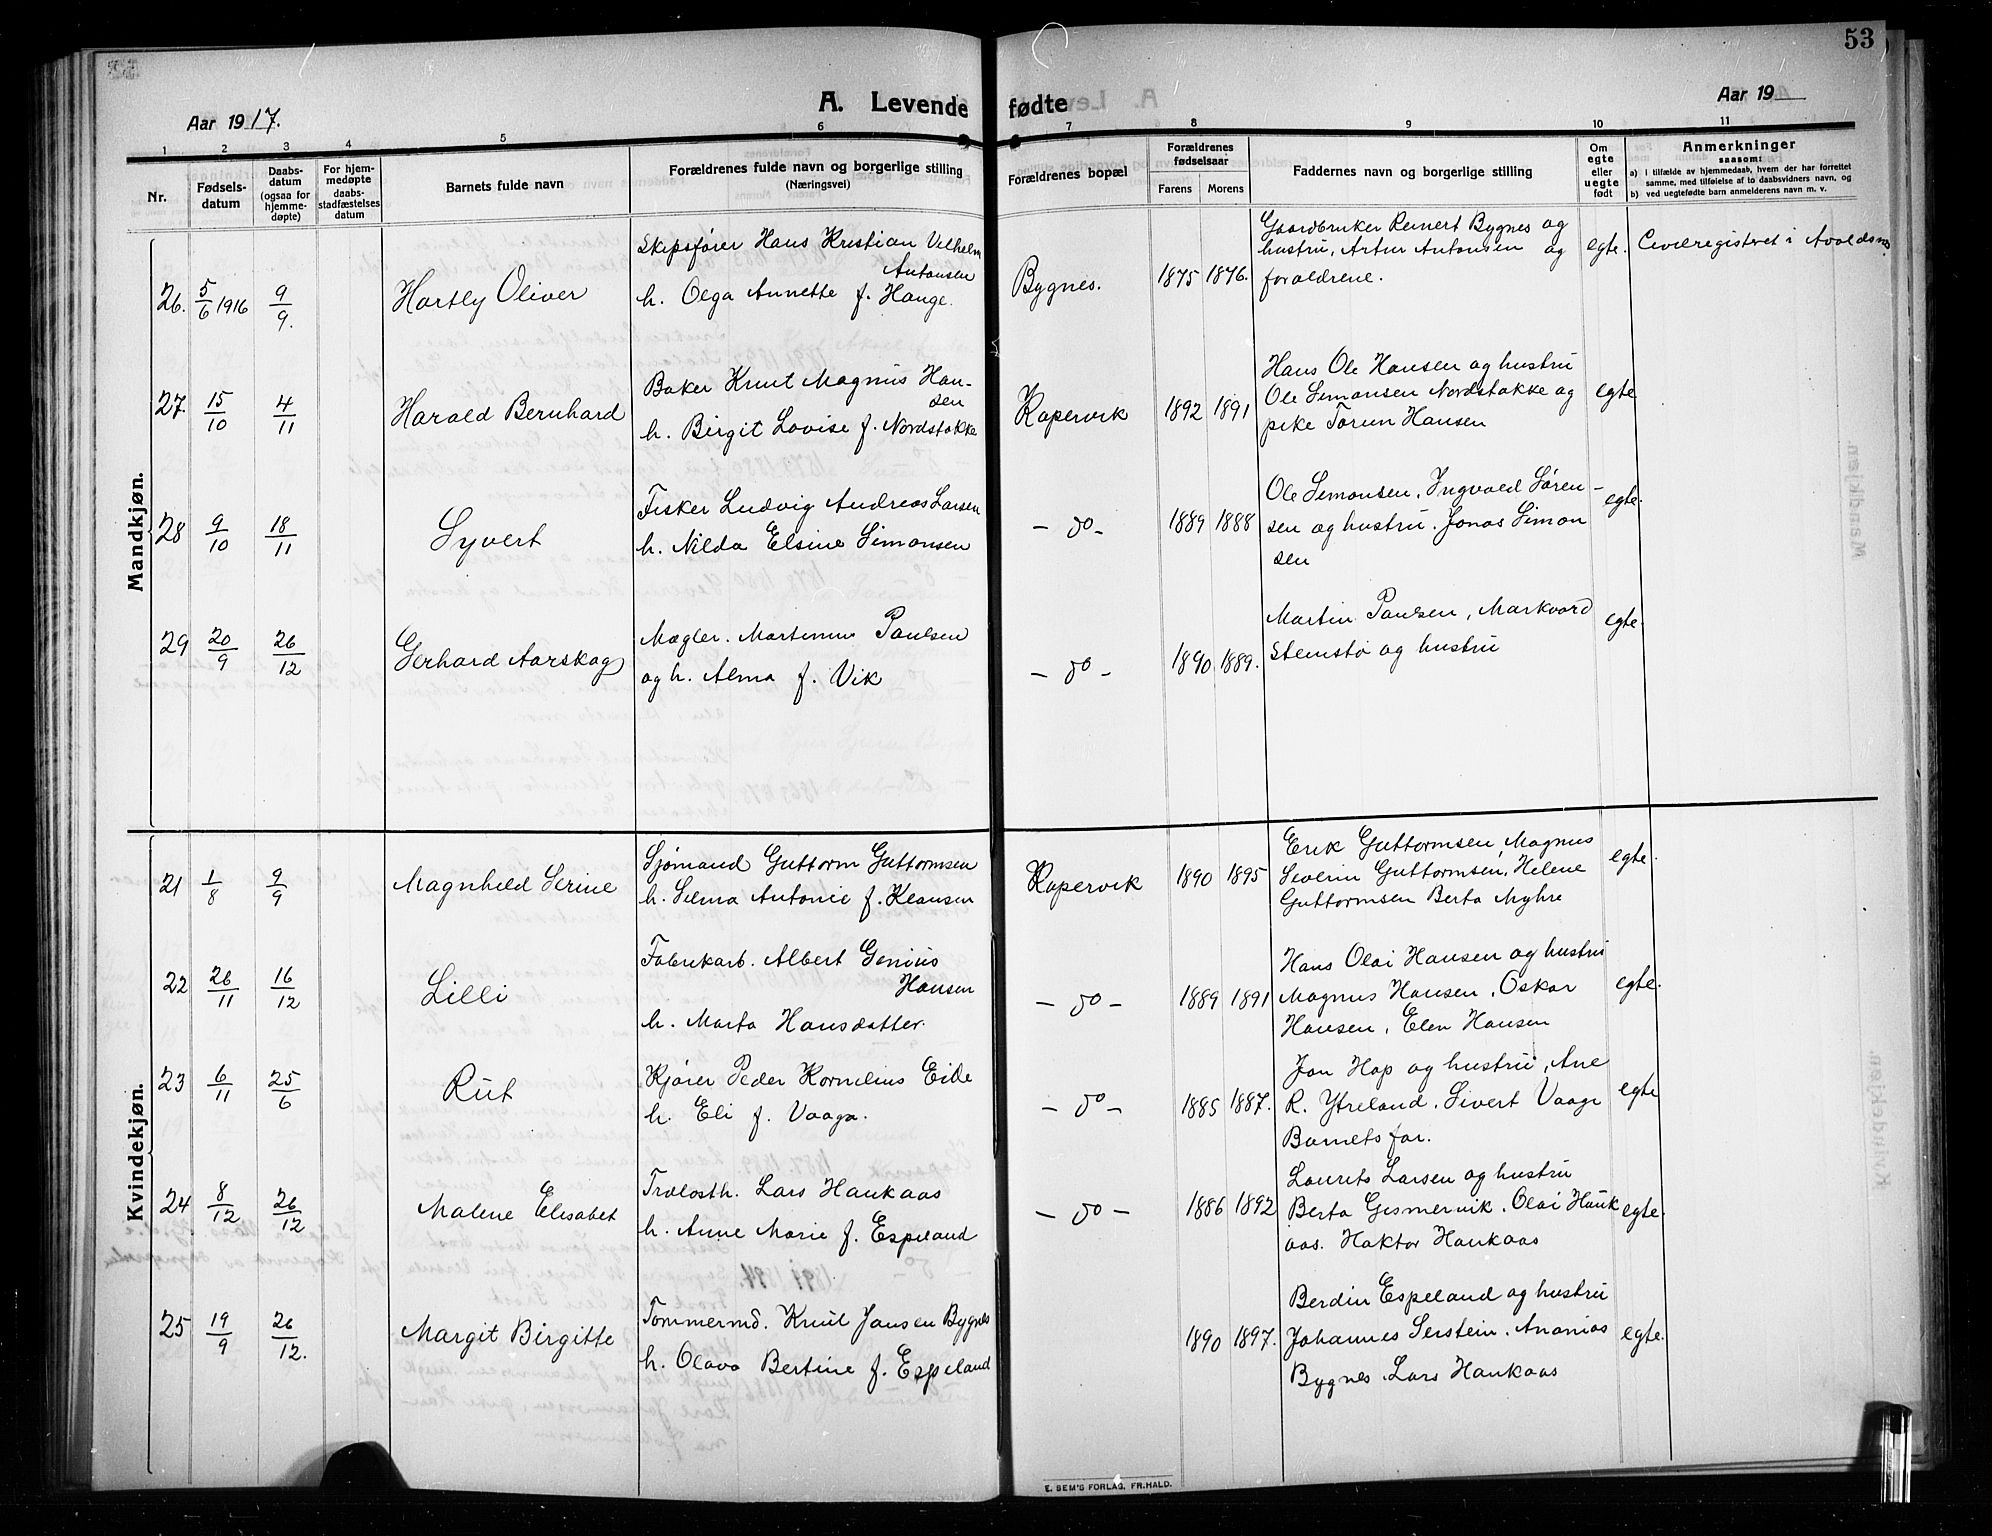 53
Aar 1917.
A. Levende fødte
Aar 19
1 2 3 4 5 6 7 8 9 10 11
Nr.
Fødsels-
datum
Daabs-
datum
(ogsaa for
hjemme-
døpte)
For hjem-
medøpte
daabs-
stadfæstelses
datum
Barnets fulde navn
Forældrenes fulde navn og borgerlige stilling
(Næringsvei)
Forældrenes bopæl
Forældrenes
fødselsaar
Farens Morens
Faddernes navn og borgerlige stilling
Om
egte
eller
uegte
født
Anmerkninger
saasom:
a) i tilfælde av hjemmedaab, hvem der har forrettet
samme, med tilføielse af to daabsvidners navn, og
b) ved uegtefødte barn anmelderens navn m. v.
Mandkjøn.
26. 5/6 1916 9/9. Hartly Oliver
Skipsfører Hans Kristian Vilhelm
Antonsen
h. Olga Annette f. Hauge.
Bygnes. 1875 1876.
Gaardbruker Reinert Bygnes og
hustru, Artur Antonsen og
forældrene.
egte. Civilregistret i Avaldsnes
27. 15/10 4/11 Harald Bernhard
Baker Knut Magnus Han-
sen
h. Birgit Lovise f. Nordstokke
Kopervik 1892 1891
Hans Ole Hansen og hustru
Ole Simonsen Nordstokke og
pike Torun Hansen
egte
28 9/10 18/11 Syvert
Fisker Ludvig Andreas Larsen
h. Nilda Elsine Simonsen
- do - 1889 1888
Ole Simonsen, Ingvald Søren-
sen og hustru. Jonas Simon
sen
egte.
29 20/9 26/12 Gerhard Aarskog
Mægler. Martinus Paulsen
og h. Alma f. Vik
- do - 1890 1889.
Martin Paulsen, Markvard
Stemstø og hustru
egte.
Kvindekjøn.
21 1/8 9/9 Magnhild Serine
Sjømand Guttorm Guttormsen
h. Selma Antonie f. Klausen
Kopervik 1890 1895
Erik Guttormsen, Magnus
Severin Guttormsen, Helene
Guttormsen Berta Myhre
egte.
22 26/11 16/12 Lilli
Fabrikarb. Albert Genius
Hansen
h. Marta Hansdatter.
- do - 1889 1891
Hans Olai Hansen og hustru
Magnus Hansen, Oskar
Hansen, Elen Hansen
egte.
23 6/11 25/6 Rut
Kjører Peder Kornelius Eide
h. Eli f. Vaaga.
- do - 1885 1887.
Jon Hop og hustru, Ane
R. Ytreland. Sivert Vaage
Barnets far.
egte
24 8/12 26/12 Malene Elisabet
Trælasth. Lars Haukaas
h. Anne Marie f. Espeland
- do - 1886 1892
Laurits Larsen og hustru
Berta Gismervik. Olai Hauk
aas. Haktor Haukaas
egte.
25 19/9 26/12. Margit Birgitte
Tømmermd. Knut Jansen Bygnes
h. Olava Bertine f. Espeland
1890 1897.
Berdin Espeland og hustru
Johannes Serstein. Ananias
Bygnes. Lars Haukaas
egte.
E. SEM'S FORLAG, FR.HALD.